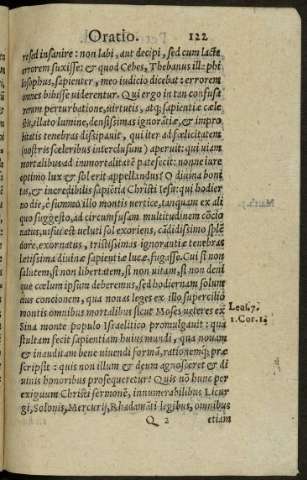 Oratio. 122
re sed insanire: non labi, aut decipi, sed cum lacte
errorem suxisse: & quod Cebes, Thebanus ille phi
losophus, sapienter, meo iudicio dicebat: errorem
omnes bibisse uiderentur. Qui ergo in tan confusa
rerum perturbatione, uirtutis, atq; sapientiæ cæle
stis, illato lumine, densissimas ignorãtiæ, & impro
bitatis tenebras discipauit, qui iter ad fœlicitatem
(nostris sceleribus interclusum) aperuit: qui uiam
mortalibus ad immortalitatẽ patefecit: nonne iure
optimo lux & sol erit appellandus? O diuina boni
tas, & incredibilis sapiẽtia Christi Iesu: qui hodier
no die, è summo illo montis uertice, tanquam ex ali
quo suggesto, ad circumfusam multitudinem cõcio
natus, uisus est ueluti sol exoriens, cãdidissimo splẽ
dore, exornatus, tristissimas ignorantiæ tenebras
lætissima diuinæ sapientiæ luce fugasse. Cui si non
salutem, si non libertatem, si non uitam, si non deni
que cœlum ipsum deberemus, sed hodiernam solunt
eius concionem, qua nouas leges ex illo supercilio
montis omnibus mortalibus sicut Moses ueteres ex
Sina monte populo Israelitico promulgauit: qua
stultam fecit sapientiam huius mundi, qua nouam
et inauditam bene uiuendi formã, rationemq; præ
scripsit: quis non illum & deum agnosceret & di
uinis honoribus prosequeretur? Quis nõ hunc per
exiguum Christi sermonẽ, innumerabilibus Licur
gi, Solonis, Mercurij, Rhadamãti legibus, omnibus
Q 2 etiam
1. Cor. 1